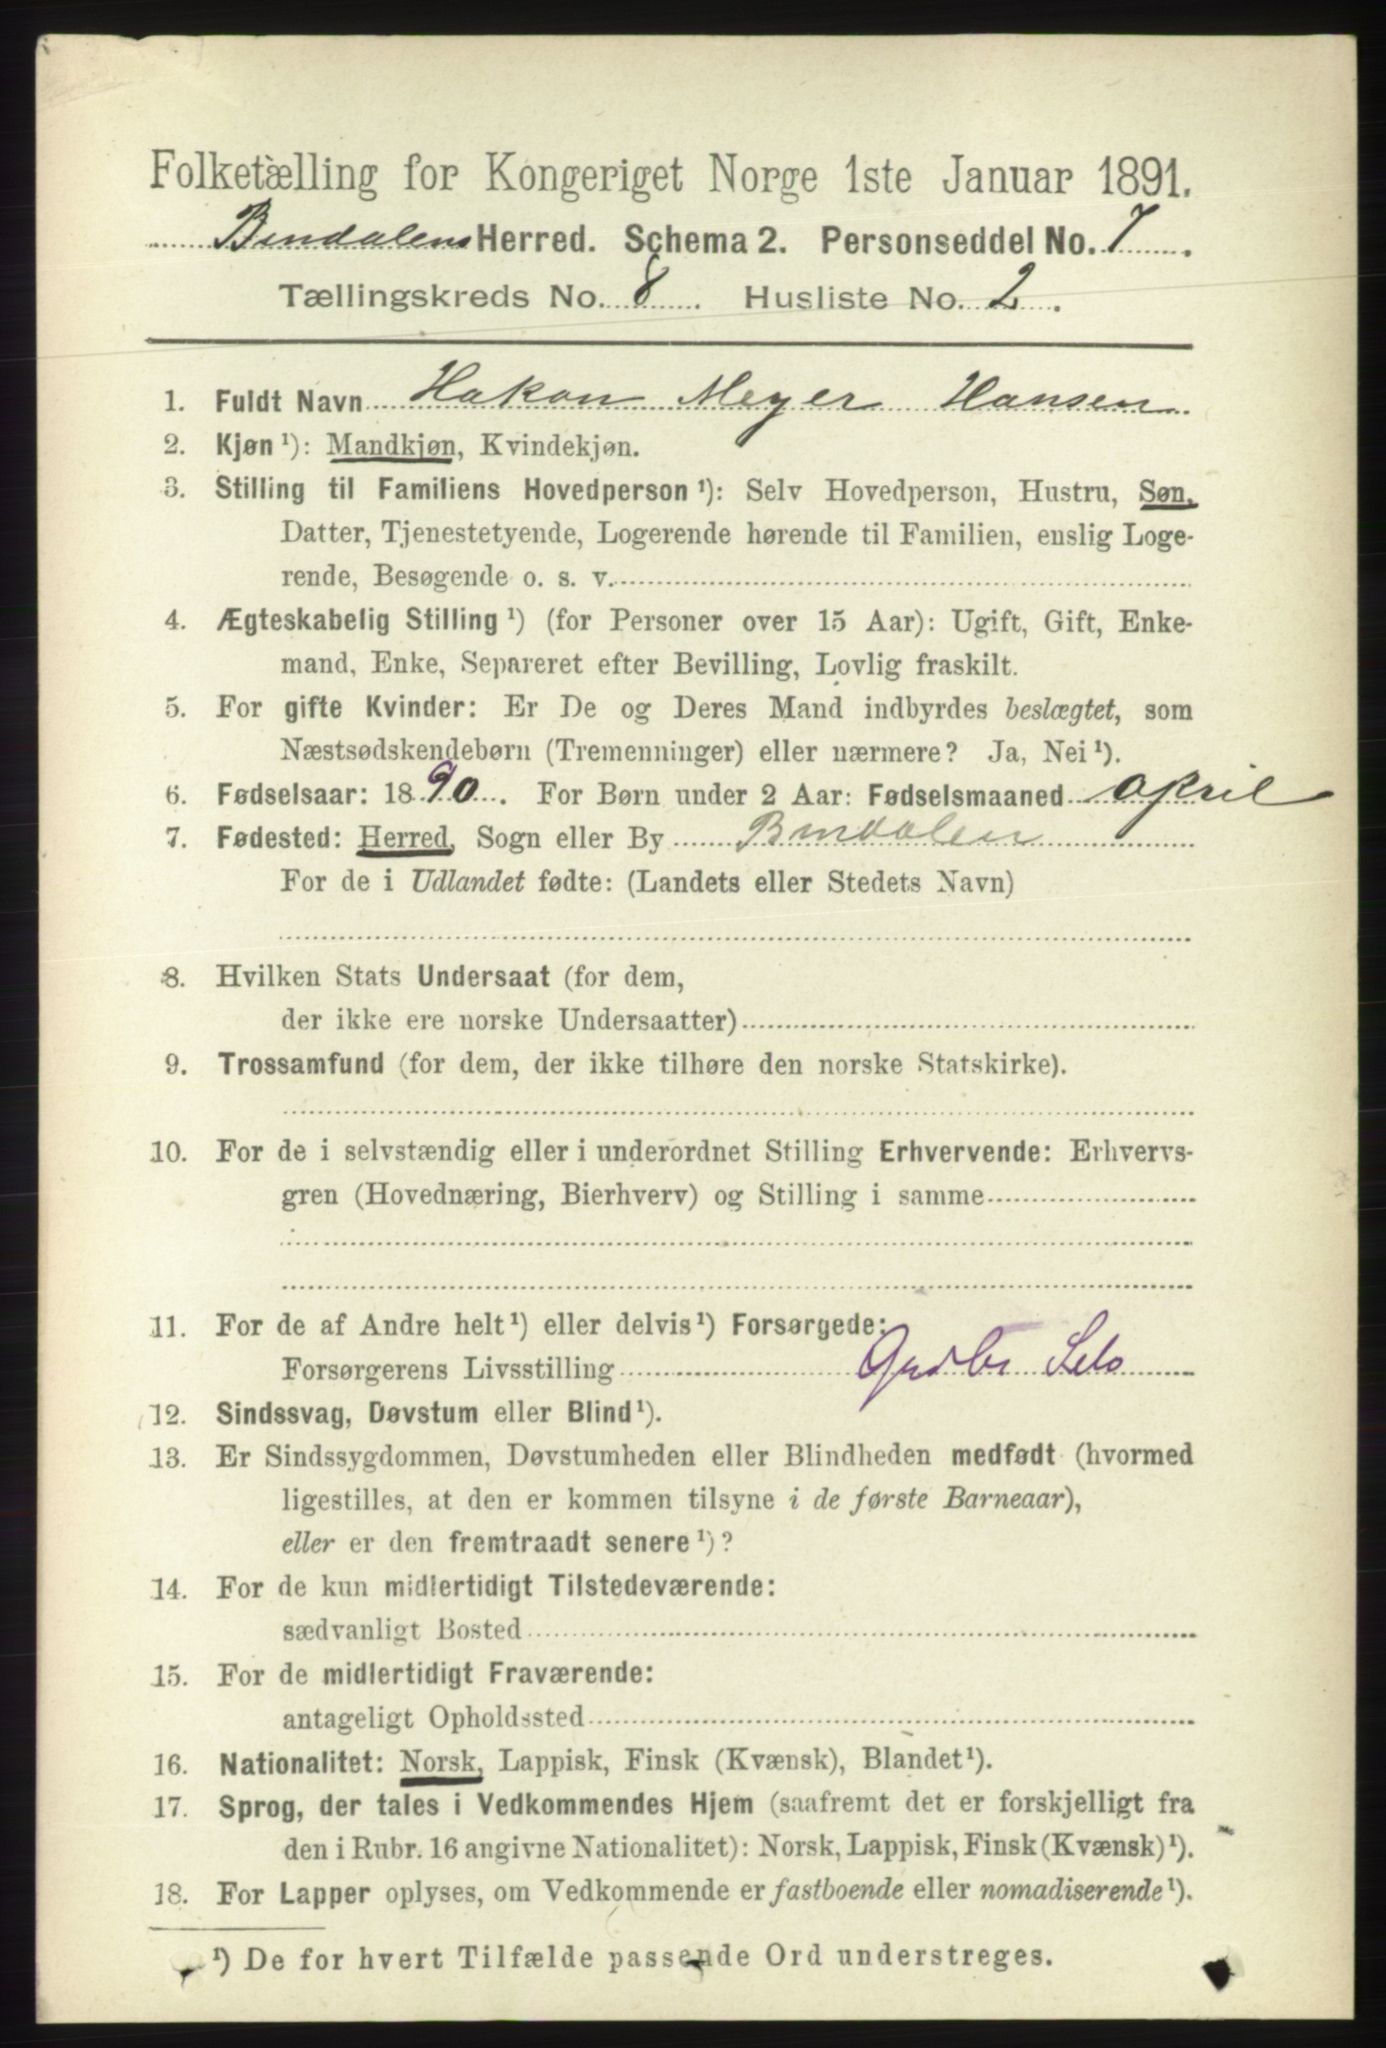 Folketælling for Kongeriget Norge 1ste Januar 1891.
Bindalens Herred. Schema 2. Personseddel No. 7.
Tællingskreds No. 8. Husliste No. 2.
1. Fuldt Navn Hakon Meyer Hansen
2. Kjøn ¹): Mandkjøn, Kvindekjøn.
3. Stilling til Familiens Hovedperson ¹): Selv Hovedperson, Hustru, Søn,
Datter, Tjenestetyende, Logerende hørende til Familien, enslig Loge-
rende, Besøgende o. s. v.
4. Ægteskabelig Stilling ¹) (for Personer over 15 Aar): Ugift, Gift, Enke-
mand, Enke, Separeret efter Bevilling, Lovlig fraskilt.
5. For gifte Kvinder: Er De og Deres Mand indbyrdes beslægtet, som
Næstsødskendebørn (Tremenninger) eller nærmere? Ja, Nei ¹).
6. Fødselsaar: 1890. For Børn under 2 Aar: Fødselsmaaned april
7. Fødested: Herred, Sogn eller By Bindalen
For de i Udlandet fødte: (Landets eller Stedets Navn)
8. Hvilken Stats Undersaat (for dem,
der ikke ere norske Undersaatter)
9. Trossamfund (for dem, der ikke tilhøre den norske Statskirke).
10. For de i selvstændig eller i underordnet Stilling Erhvervende: Erhvervs-
gren (Hovednæring, Bierhverv) og Stilling i samme
11. For de af Andre helt ¹) eller delvis ¹) Forsørgede:
Forsørgerens Livsstilling Gndbr Selv
12. Sindssvag, Døvstum eller Blind ¹).
13. Er Sindssygdommen, Døvstumheden eller Blindheden medfødt (hvormed
ligestilles, at den er kommen tilsyne i de første Barneaar),
eller er den fremtraadt senere ¹)?
14. For de kun midlertidigt Tilstedeværende:
sædvanligt Bosted
15. For de midlertidigt Fraværende:
antageligt Opholdssted
16. Nationalitet: Norsk, Lappisk, Finsk (Kvænsk), Blandet ¹).
17. Sprog, der tales i Vedkommendes Hjem (saafremt det er forskjelligt fra
den i Rubr. 16 angivne Nationalitet): Norsk, Lappisk, Finsk (Kvænsk) ¹).
18. For Lapper oplyses, om Vedkommende er fastboende eller nomadiserende ¹).
¹) De for hvert Tilfælde passende Ord understreges.